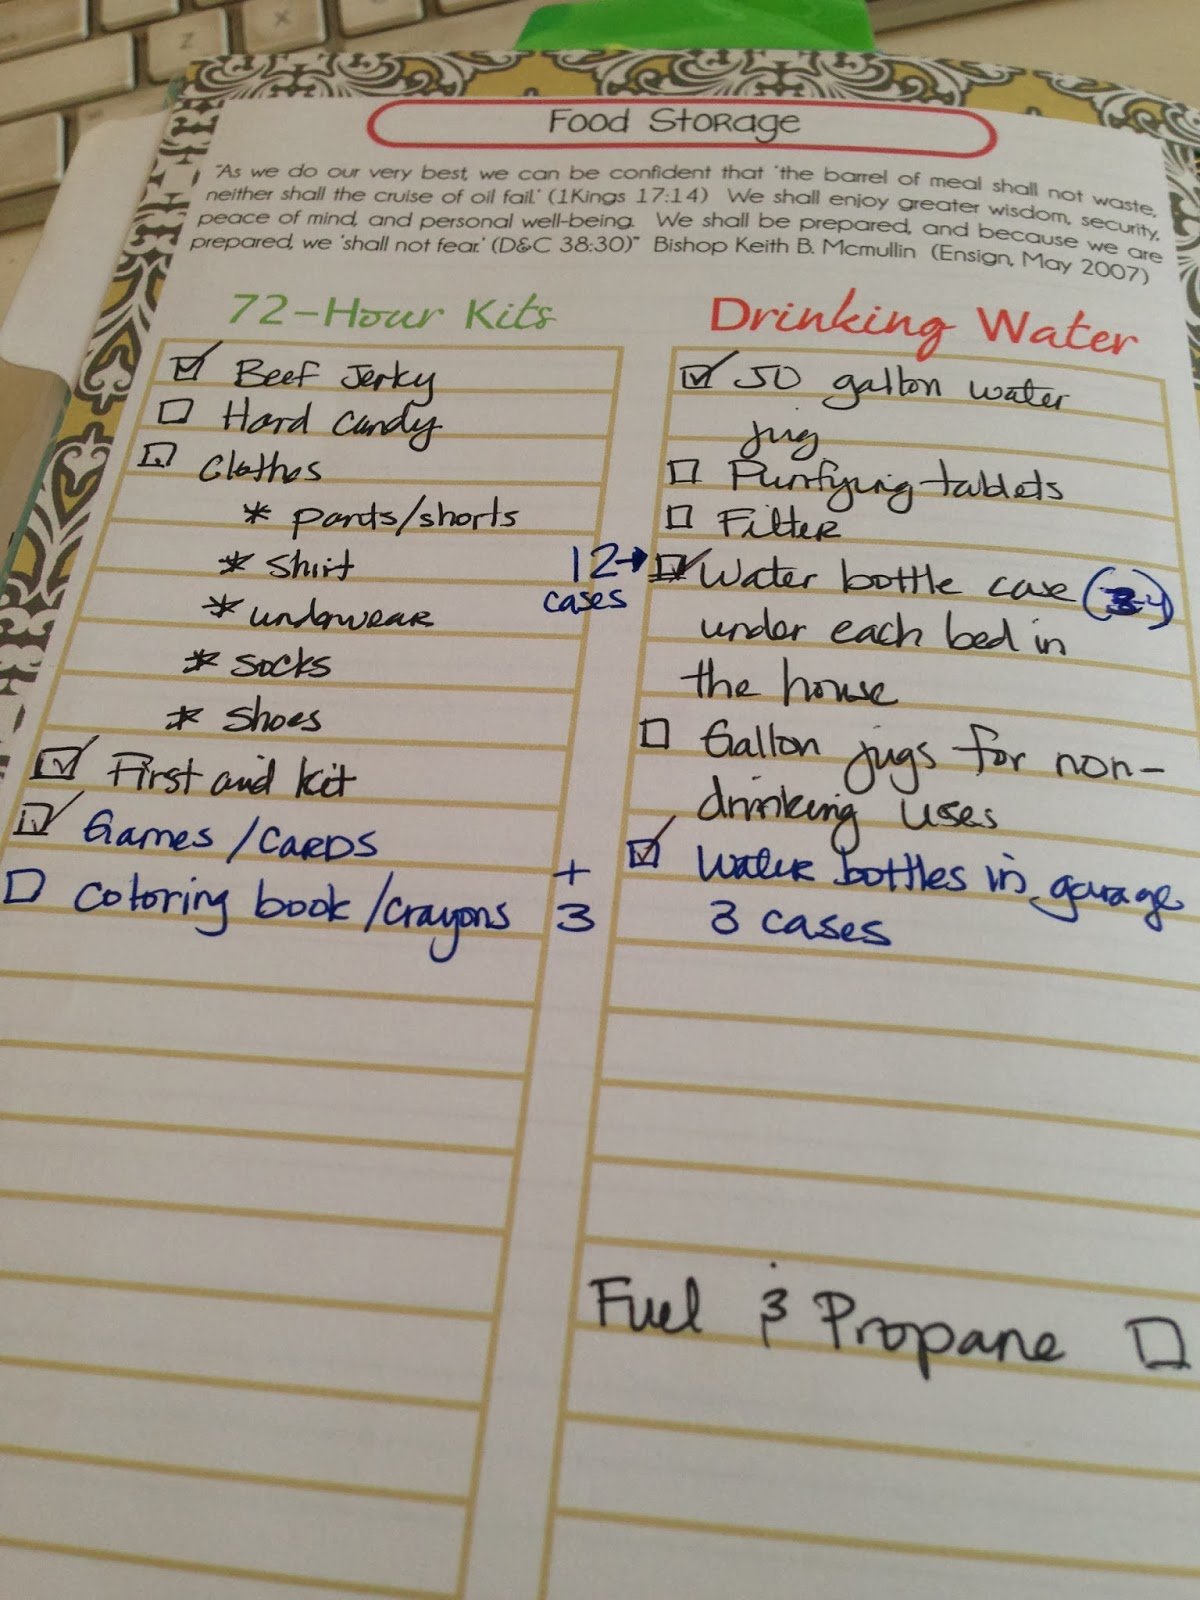 Z X
Food Storage
"As we do our very best, we can be confident that 'the barrel of meal shall not waste,
neither shall the cruise of oil fail.' (1Kings 17:14) We shall enjoy greater wisdom, security,
peace of mind, and personal well-being. We shall be prepared, and because we are
prepared, we 'shall not fear.' (D&C 38:30)" Bishop Keith B. Mcmullin (Ensign, May 2007)
72-Hour Kits
Beef Jerky
Hard candy
Clothes
* pants/shorts
* shirt
* underwear
* socks
* shoes
First aid kit
Games/CARDS
Coloring book/crayons
Drinking Water
50 gallon water
jug
Purifying tablets
Filter
12→ Water bottle case (3-4)
cases
under each bed in
the house
Gallon jugs for non-
drinking uses
+ Water bottles in garage
3 3 cases
Fuel & Propane